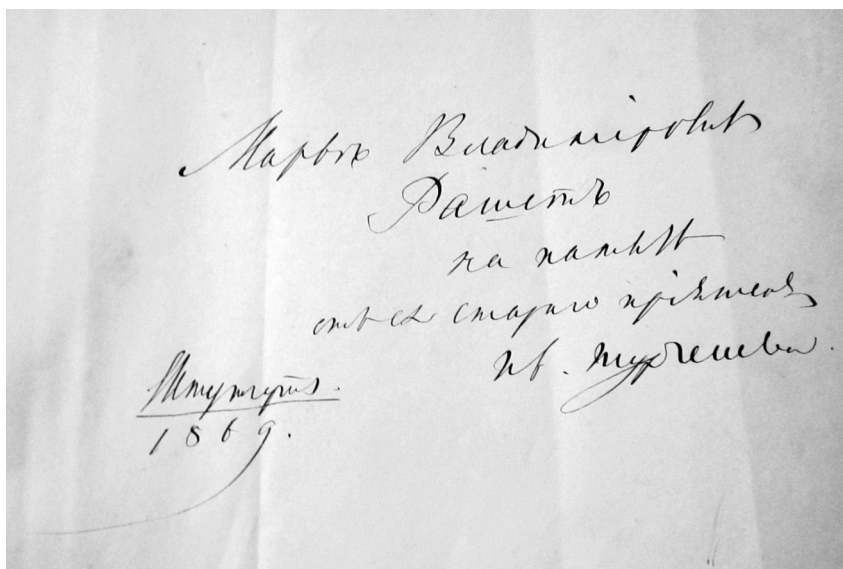 Марьѣ Владимiровнѣ
Рашетъ
на память
отъ ея стараго прiятеля
Ив. Тургенева.
Штутгартъ.
1869.